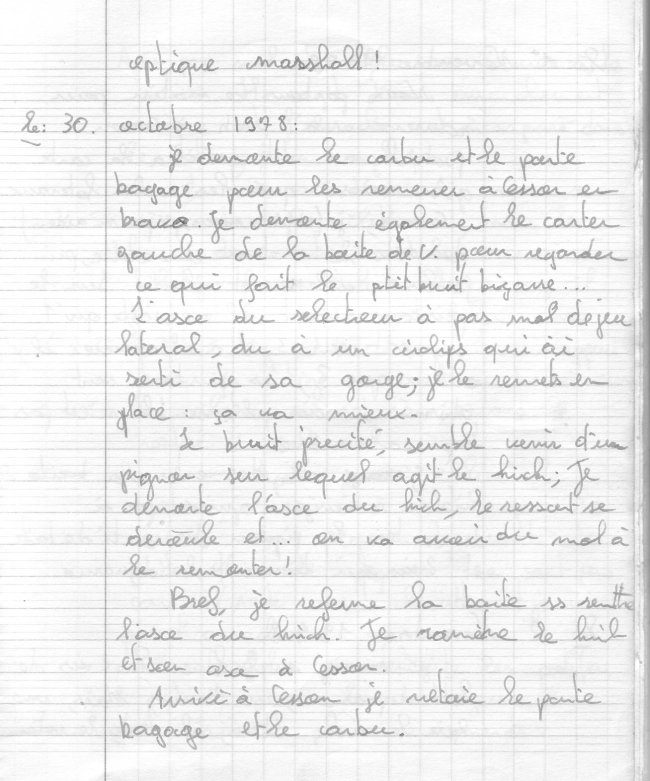 optique marshall !
le: 30. octobre 1978:
je demonte le carbu et le porte
bagage pour les remener à Cesson en
bravo. Je demonte également le carter
gauche de la boite de V. pour regarder
ce qui fait le ptit bruit bizarre...
L'axe du selecteur à pas mal de jeu
lateral, du à un circlips qui
sorti de sa gorge; je le remets en
place : ça va mieux.
Le bruit precité, semble venir d'un
pignon sur lequel agit le kick; Je
démonte l'axe du kick, le ressort se
deroule et... on va avoir du mal à
le remonter!
Bref, je referme la boite ss remttre
l'axe du kick. Je ramène le
et son à Cesson.
Arrivé à Cesson je netoie le porte
bagage et le carbu.